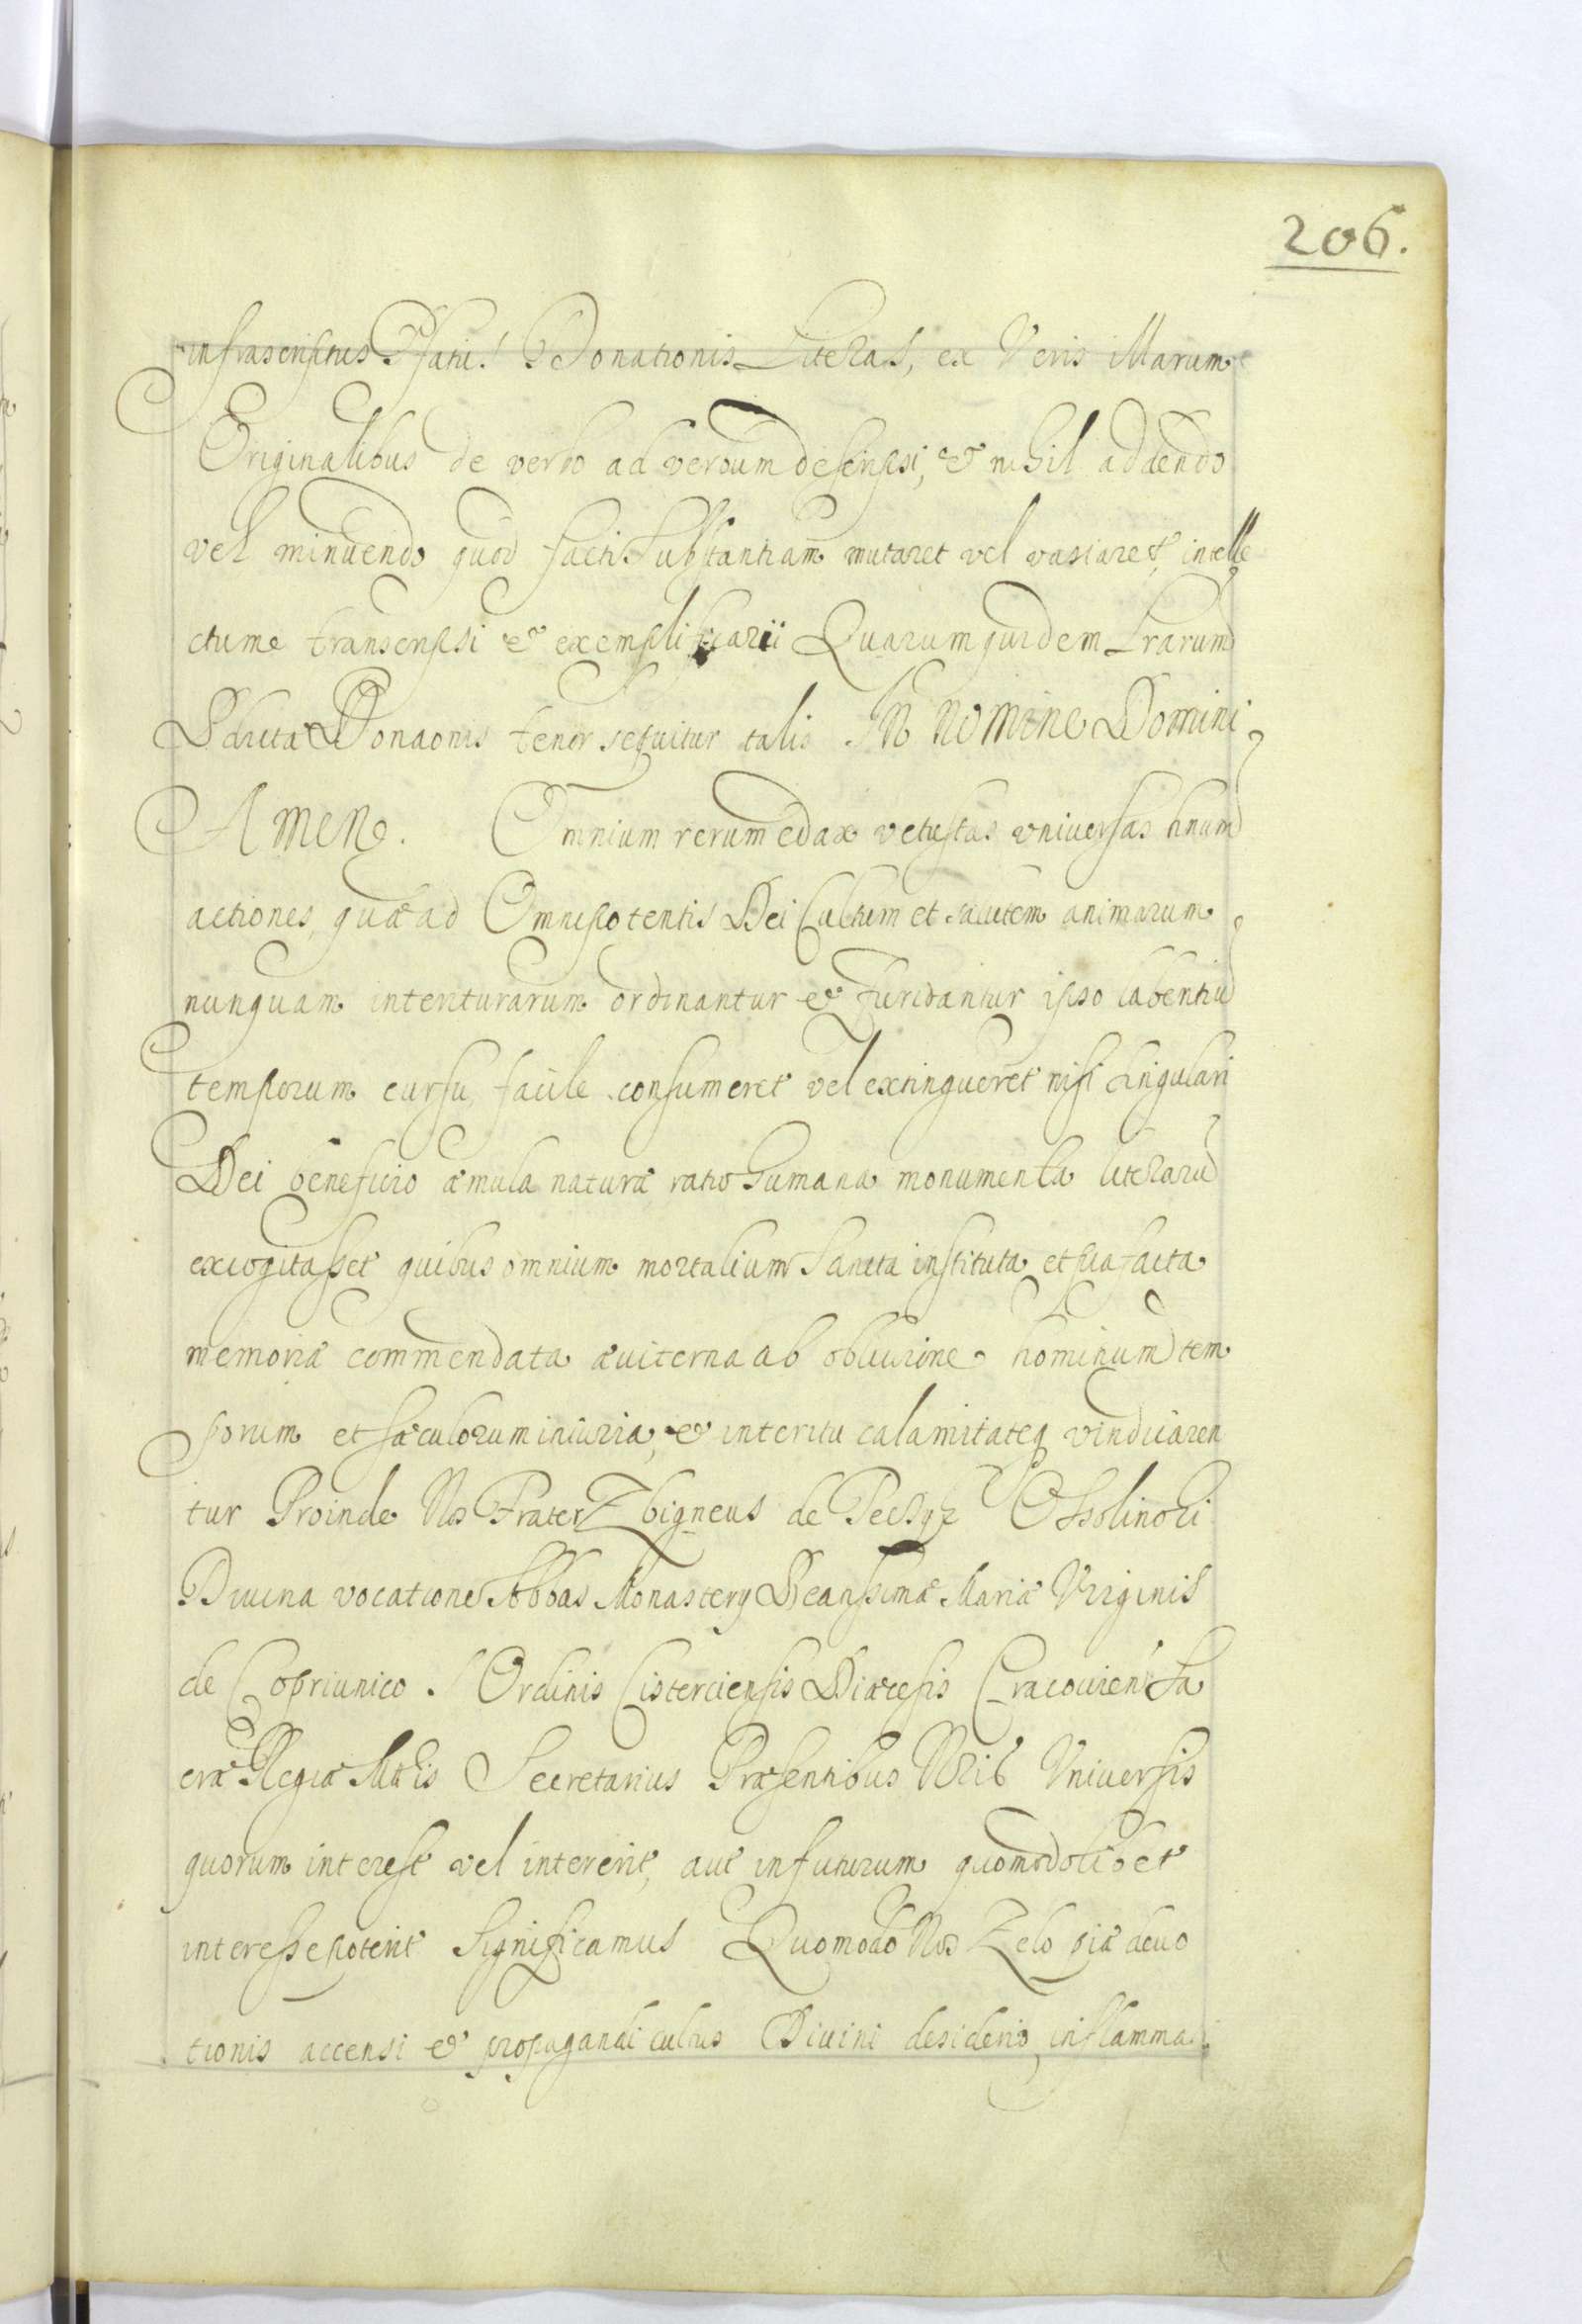 206.
infrascriptus Donationis Literas, ex Veris Illarum
Originalibus de verbo ad verbum descripsi, et nihil addendo
vel minuendo quod facti substantiam mutaret vel variaret, intelle
ctume transcripsi et exemplificavi Quarum quidem Lrarum
Donaonis tenor sequitur talis In nomine Domini
Amen. Omnium rerum edax vetustas vniuersas hnum
actiones, quæ ad Omnipotentis Dei Cultum et salutem animarum
nunquam interiturarum ordinantur et fundantur ipso labentiũ
temporum cursu, facile consumeret vel extingueret nisi singulari
Dei beneficio æmula naturæ ratio humana monumenta literarũ
excogitasset quibus omnium mortalium Sancta instituta et pia facta
memoriæ commendata æuiterna ab obliuione hominum tem
porum et sæculorum iniuria, et interitu calamitateq vindicaren
tur Proinde Nos Frater Zbigneus de Ossolinski
Diuina vocatione Abbas Monastery Beatissimæ Mariæ Virginis
de Copriunico Ordinis Cisterciensis Diæcesis Cracouien Sa
cræ Regiæ Mttis Secretarius Præsentibus Nris Vniuersis
quorum interest vel intererit, aut in futurum quomodolibet
interesse poterit Significamus Quomodo Nos Zelo piæ deuo
tionis accensi et propagandi cultus Diuini desiderio inflammati